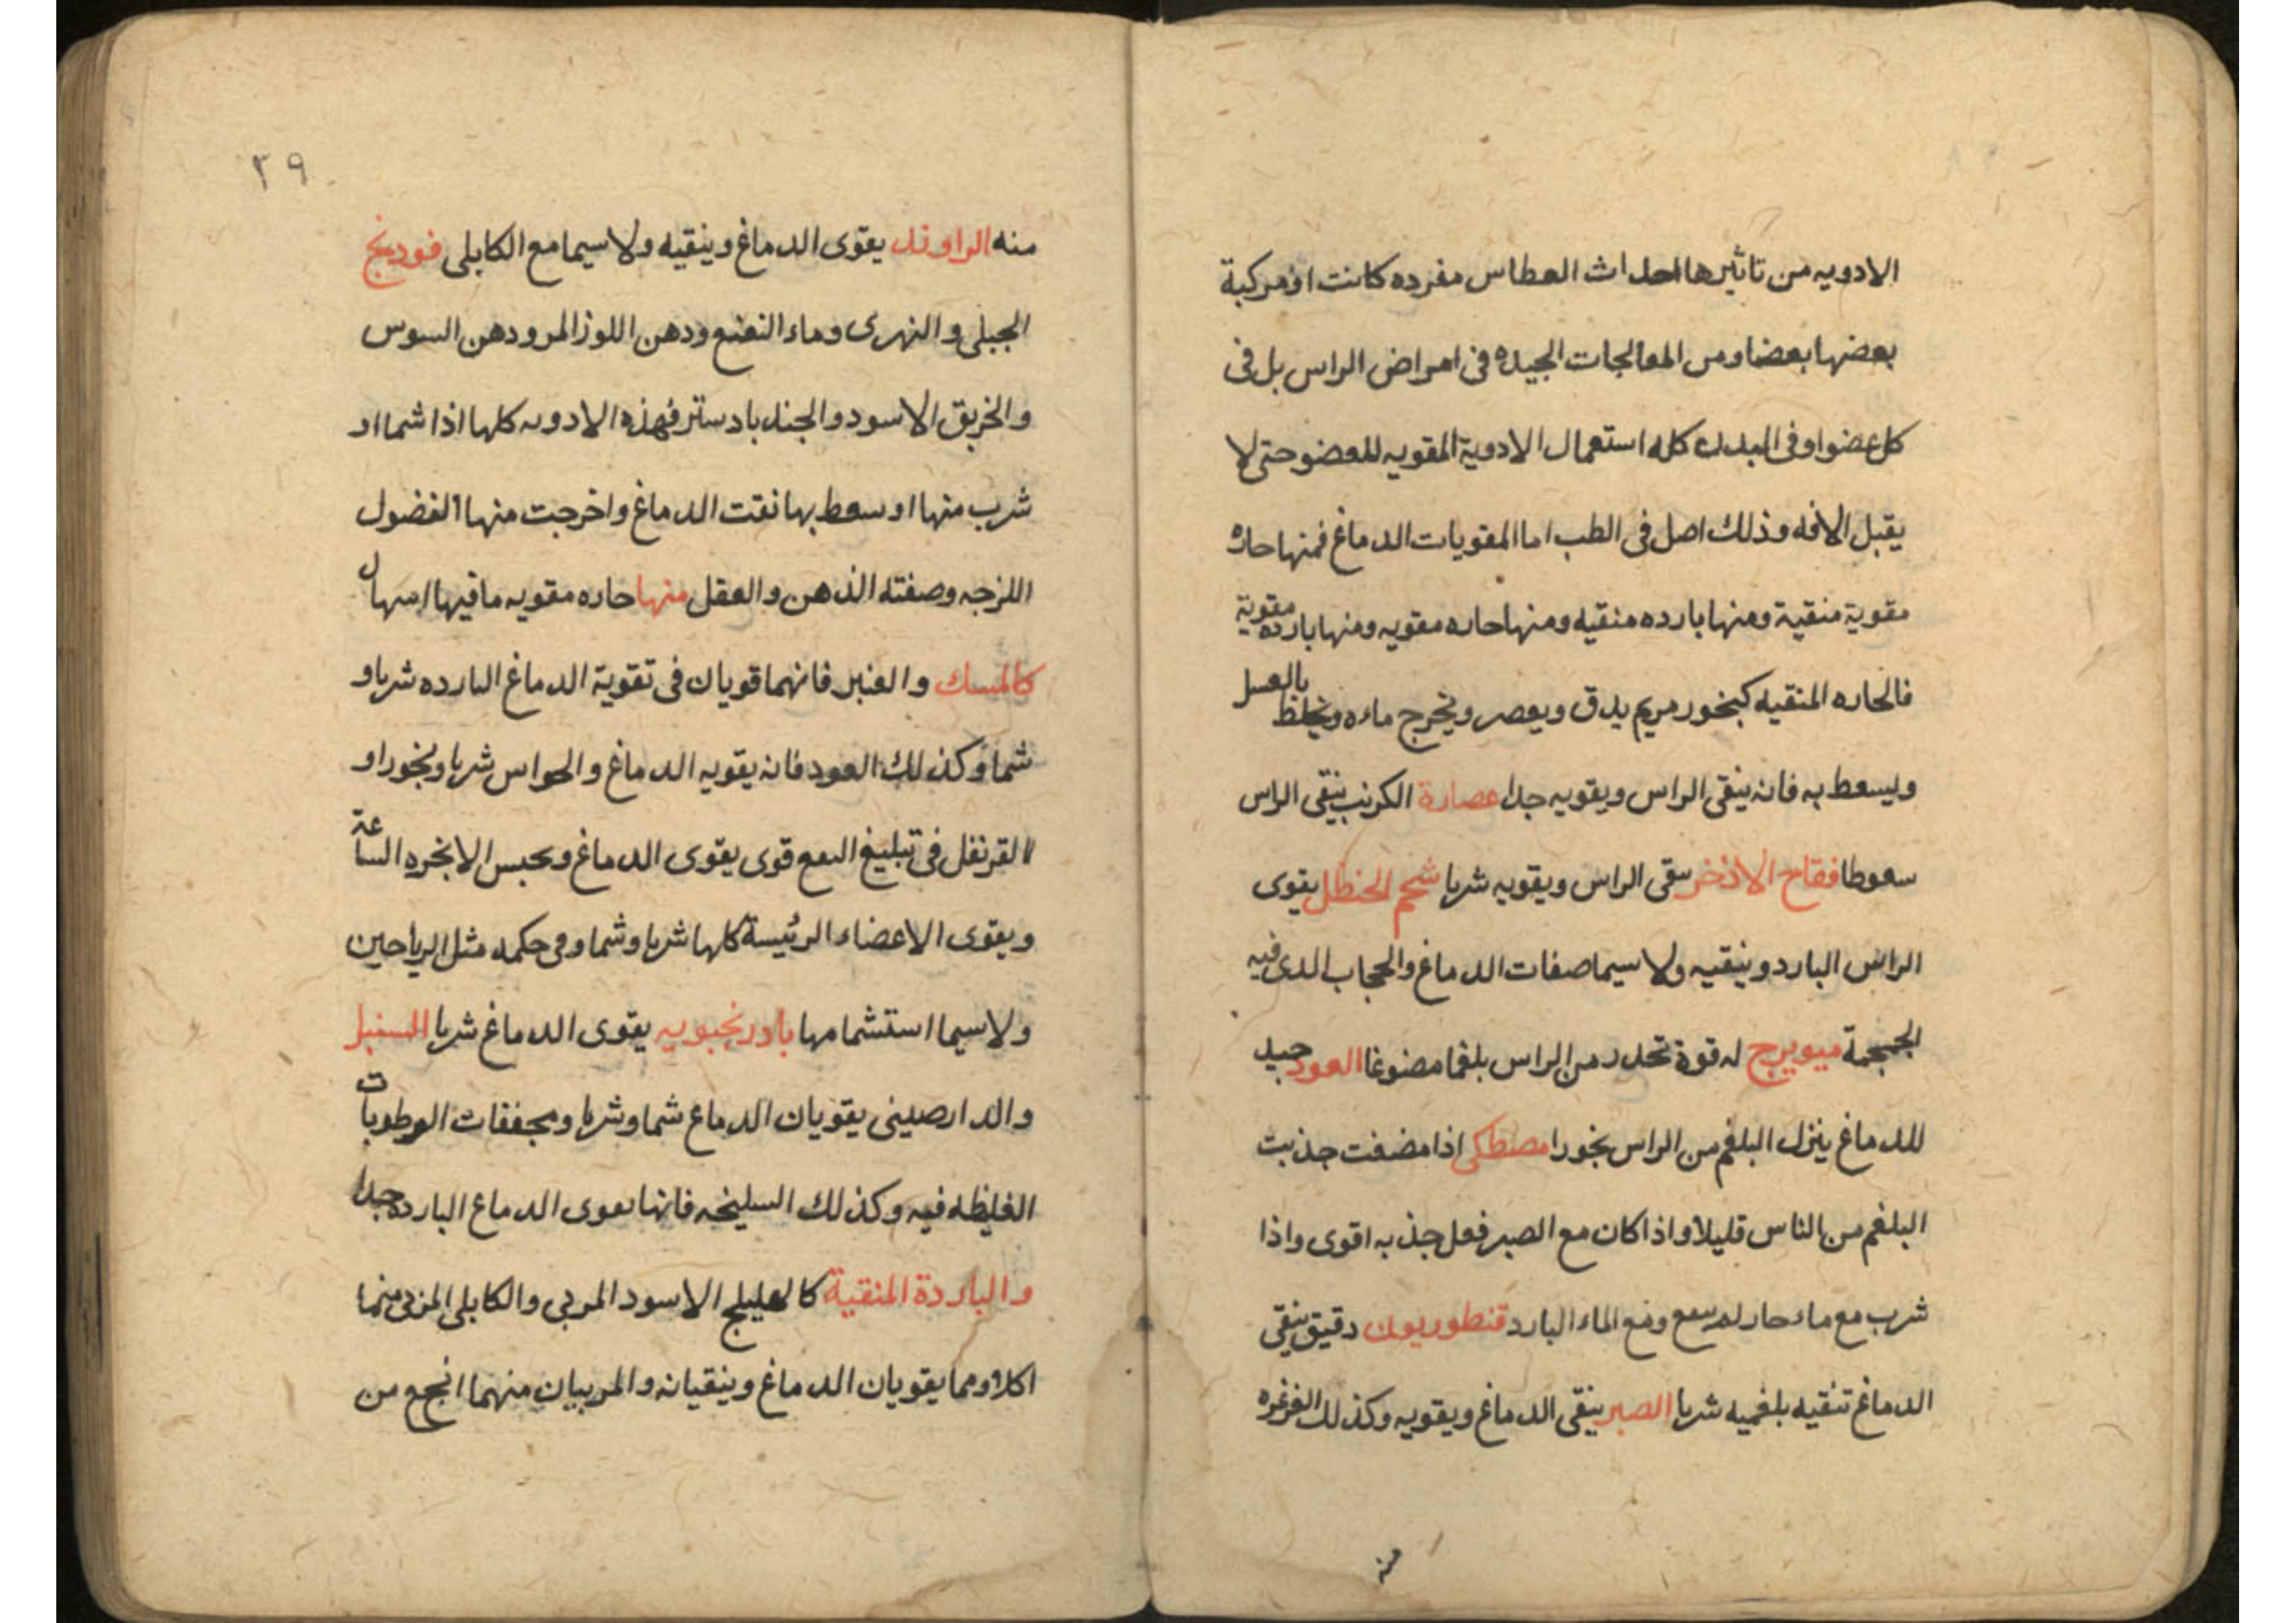 الادويه من تاثيرها احداث العطاس مفرده كانت او مركبة
بعضها بعضا ومن المعالجات الجيده فى امراض الراس بل فى
كل عضو او فى البدن كله استعمال الادوية المقويه للعضو حتى لا
يقبل الافه وذلك اصل فى الطب اما المقويات الدماغ فمنها حاره
مقوية منقية ومنها بارده منقيه ومنها حاره مقويه ومنها بارده مقوية
فالحاره المنقيه كبخور مريم يدق ويعصر ويخرج ماءه ويخلط بالعسل
وليسعط به فانه ينقى الراس ويقويه جدا عصارة الكرنب ينقى الراس
سعوطا فقاح الاذخر ينقى الراس ويقويه شربا شحم الحنظل يقوى
الراس البارد وينقيه ولا سيما صفات الدماغ والحجاب الدى فيه
الجمجمة ميويزج له قوة تحدر من الراس بلغما مضوغا العود جيد
للدماغ ينزل البلغم من الراس بخورا مصطكى اذا مضغت جذبت
البلغم من الناس قليلا واذا كان مع الصبر فعل جذبه اقوى واذا
شرب مع ماء حار لم ومع الماء البارد قنطوريون دقيق ينقى
الدماغ تنقيه بلغميه شربا الصبر ينقى الدماغ ويقويه وكذلك الغرغره
منه
٣٩
منه الراوند يقوى الدماغ وينقيه ولا سيما مع الكابلى فودينج
الجبلى والنهرى وماء النعنع ودهن اللوز المر ودهن السوس
والخربق الاسود والجندبادستر فهذه الادويه كلها اذا شما او
شرب منها او سعط بها نقت الدماغ واخرجت منها الفضول
اللزجه وصفته الذهن والعقل منها حاره مقويه ما فيها اسهال
كالمسك والعنبر فانهما قويان فى تقوية الدماغ البارده شربا و
شما وكذلك العود فانه يقويه الدماغ والحواس شربا وبخورا و
القرنفل فى تبليغ قوى يقوى الدماغ ويحبس الابخره الساعة
ويقوى الاعضاء الرئيسة كلها شربا وشما وفى حكمه مثل الرياحين
ولاسيما استشمامها بادرنجبويه يقوى الدماغ شربا السنبل
والدارصينى يقويان الدماغ شما وشربا ومجففات الرطوبات
الغليظه فيه وكذلك السليخه فانها يقوى الدماغ البارده جدا
والباردة المنقية كالهليلج الاسود المربى والكابلى المربى منهما
اكلا ومما يقويان الدماغ وينقيانه والمربيان منهما انجع من